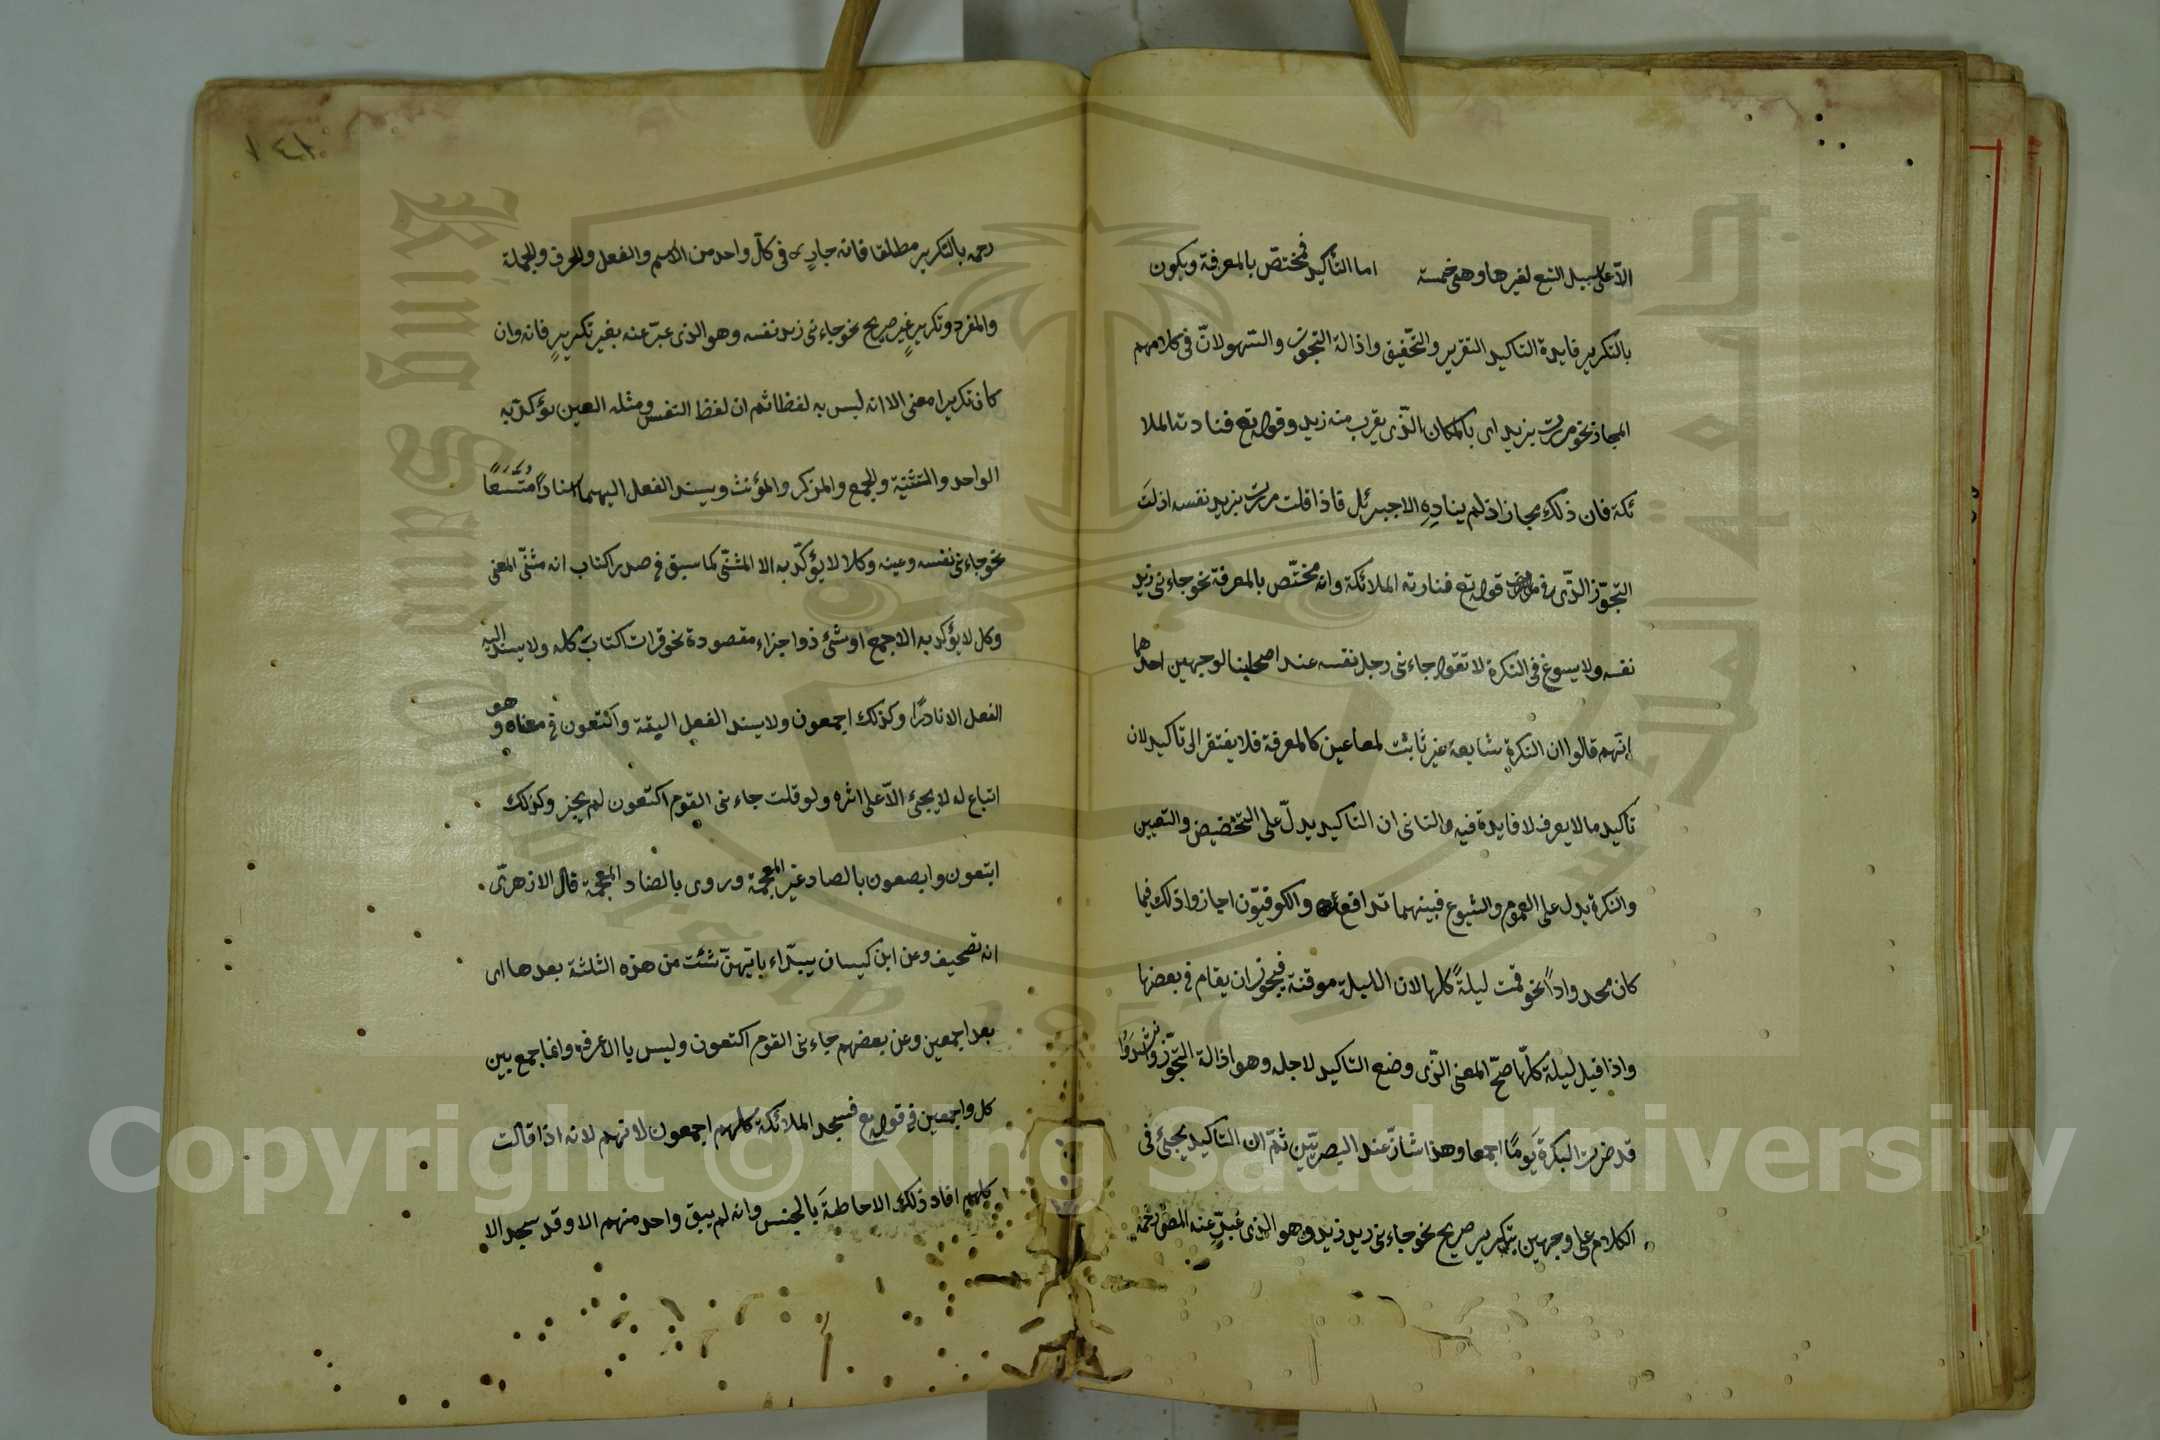 الاّ على سبيل التبع لغيرها وهى خمسة اما التأكيد فمختصّ بالمعرفة ويكون
بالتكرير فايدة التاكيد التقرير والتحقيق واذالة التجوزت والتسهولاتّ فى كلامهم
المجاز نحو مررت بزيد اى بالمكان الذّى يقرب منه زيد وقوله تع فنادته الملا
ئكة فان ذلك مجاز اذ لم ينادِهِ الا جبرئل فاذا قلت مررت بزيد نفسه اذلتَ
التجوّز الذّى فى قوله تع فنادته الملائكة وانه مختّص بالمعرفة نحو جاءنى زيد
نفسه ولا يسوغ فى النكرة لا تقول جاءنى رجل نفسه عند اصحابنا لوجهين احدهما
انّهم قالوا ان النكرة شايعة غير ثابث لمعاعين كالمعرفة فلا يفتقر الى تاكيد لان
تاكيد ما لا يعرف لا فايدة فيه والثانى ان التاكيد يدلّ على التخضيض والتعيين
والنكرة يدل على العموم والشيوع فبينهما تدافع والكوفيّون اجازوا ذلك فيما
كان محدوداً نحو قمت ليلةً كلها لان الليلة موقتة فيجوز ان يقام فى بعضها
واذا قيل ليلة كلّها صحّ المعنى الذّى وضع التاكيد لاجله وهو اذالة التجّوز وانشدوا
قد ضرت البكرة يَومًا اجمعا وهذا شاذّ عند البصريّين ثمّ ان التاكيد يجئ فى
الكلام على وجهين بتكرير صريح نحو جاءنى زيد زيد وهو الذى عبرّ عنه المص رحمه
١٤١
رحمه بالتكرير مطلقا فانه جارٍ فى كلّ واحد من الاسم والفعل والحرف والجملة
والمفرد وتكريرٍ غير صريح نحو جاءنى زيد نفسه وهو الذى عبّر عنه بغير تكريرٍ فانه وان
كان تكريرا معنى الا انه ليس به لفظا ثم ان لفظ النفس ومثله العين يؤكدّ به
الواحد والتثنية والجمع والمذكر والمؤنث ويسند الفعل اليهما اسناداً مُتَّسَعًا
نحو جاءنى نفسه وعينه وكلا لا يؤكدّ به الا المثنّى كما سبق فى صدر الكتاب انه مثنّى المعنى
وكل لا يؤكد به الا جمع او شئ ذو اجزاء مقصودة نحو قرات كتابَ كله ولا يسند اليه
الفعل الا نادرًا وكذلك اجمعون ولا يسند الفعل اليه بتة واكتعون فى معناه وهو
اتباع له لا يجئ الاّ على اثره ولو قلت جاءنى القوم اكتعون لم يجز وكذلك
ابتعون وابصعون بالصاد غير المعجمة وروى بالضاد المعجمة قال الازهرىّ
انه تصحيف وعن ابن كيسان يبدّاء بايّتهنّ شئت من هذه الثلثة بعدها اى
بعد اجمعين وعن بعضهم جاءنى القوم اكتعون وليس بالاعرف وانما جمع بين
كل واجمعين فى قوله تع فسجد الملائكة كلهم اجمعون لانهم لانه اذا قالت
كلهم افاد ذلك الاحاطةَ بالجنس وانه لم يبق واحد منهم الا وقد سجد الا